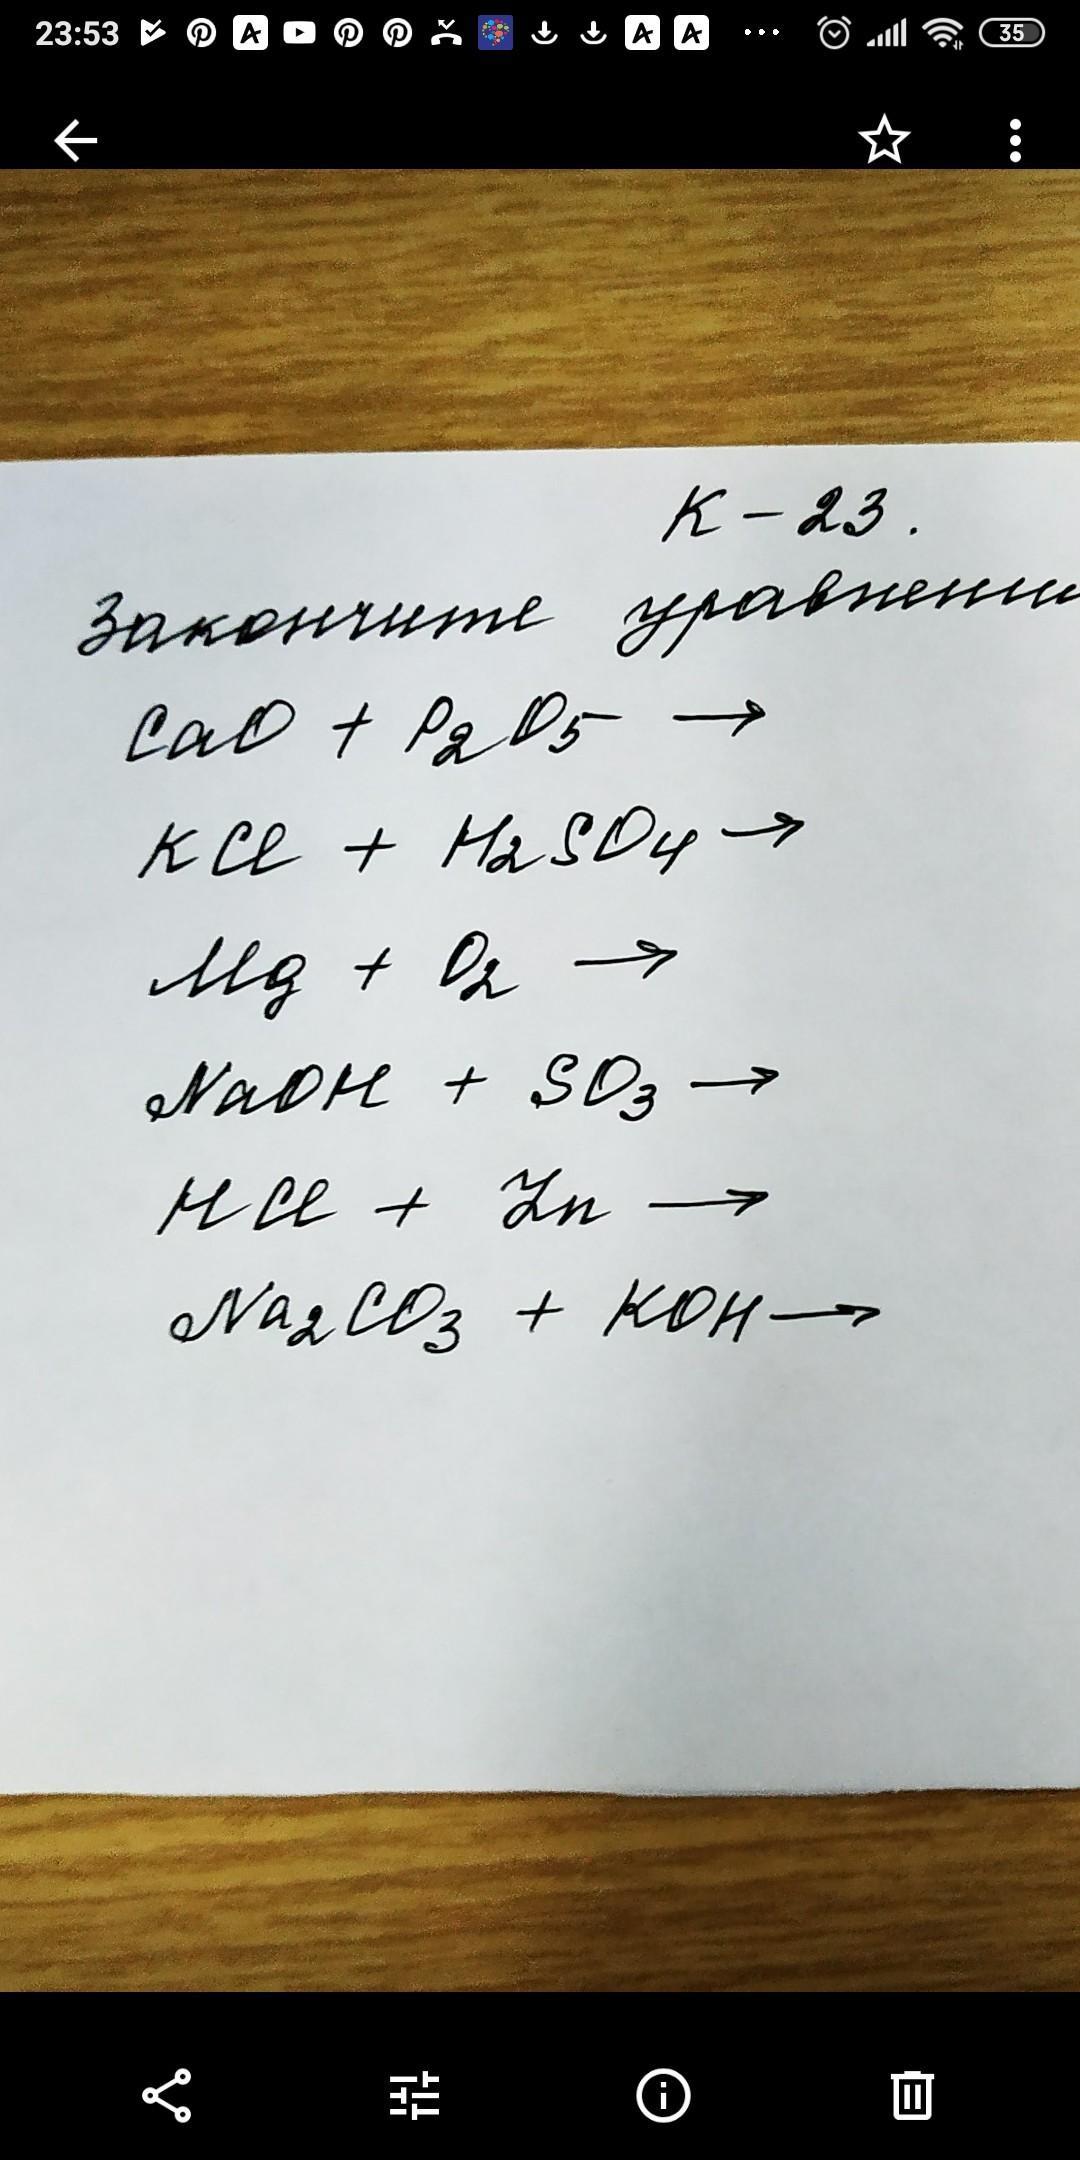 23:53 35
К - 23.
Закончите уравнени
CaO + P2O5 →
KCl + H2SO4 →
Mg + O2 →
NaOH + SO3 →
HCl + Zn →
Na2CO3 + KOH →